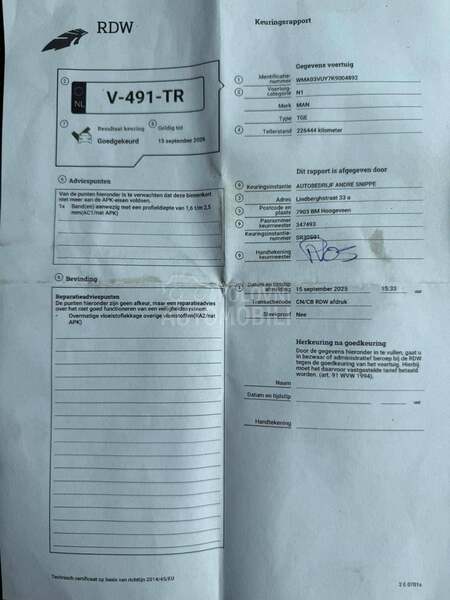 RDW
Keuringsrapport
NL
V-491-TR
Resultaat keuring
Goedgekeurd
Geldig tot
Adviespunten
Van de punten hieronder is te verwachten dat deze binnenkort
niet meer aan de APK-eisen voldoen.
1x Band(en) aanwezig met een profieldiepte van 1,6 t/m 2,5
mm(AC1/nat APK)
Bevinding
Reparatieadviespunten
De punten hieronder zijn geen afkeur, maar een reparatieadvies
over het niet goed functioneren van een veiligheidssysteem.
- Overmatige vloeistoflekkage overige vloeistoffen(RA2/nat
APK)
Technisch certificaat op basis van richtlijn 2014/45/EU
Gegevens voertuig
Identificatie-
nummer WMA03VUY7K9004892
Voertuig-
categorie N1
Merk MAN
Type TGE
Tellerstand 226444 kilometer
Dit rapport is afgegeven door
Keuringsinstantie AUTOBEDRIJF ANDRE SNIPPE
Adres Lindberghstraat 33 a
Postcode en
plaats 7903 BM Hoogeveen
Pasnummer
keurmeester 347493
Keuringsinstantie-
nummer
Handtekening
keurmeester
Datum en tijdstip
afmelding 15 september 2025 15:33 uur
Transactiecode CN/CB RDW afdruk
Steekproef Nee
POLOVNI
AUTOMOBILI
Herkeuring na goedkeuring
Door de gegevens hieronder in te vullen, gaat u
in bezwaar of administratief beroep bij de RDW
tegen de goedkeuring van het voertuig. Hierbij
moet het daarvoor vastgestelde tarief betaald
worden. (art. 91 WVW 1994).
Naam
Datum en tijdstip uur
Handtekening